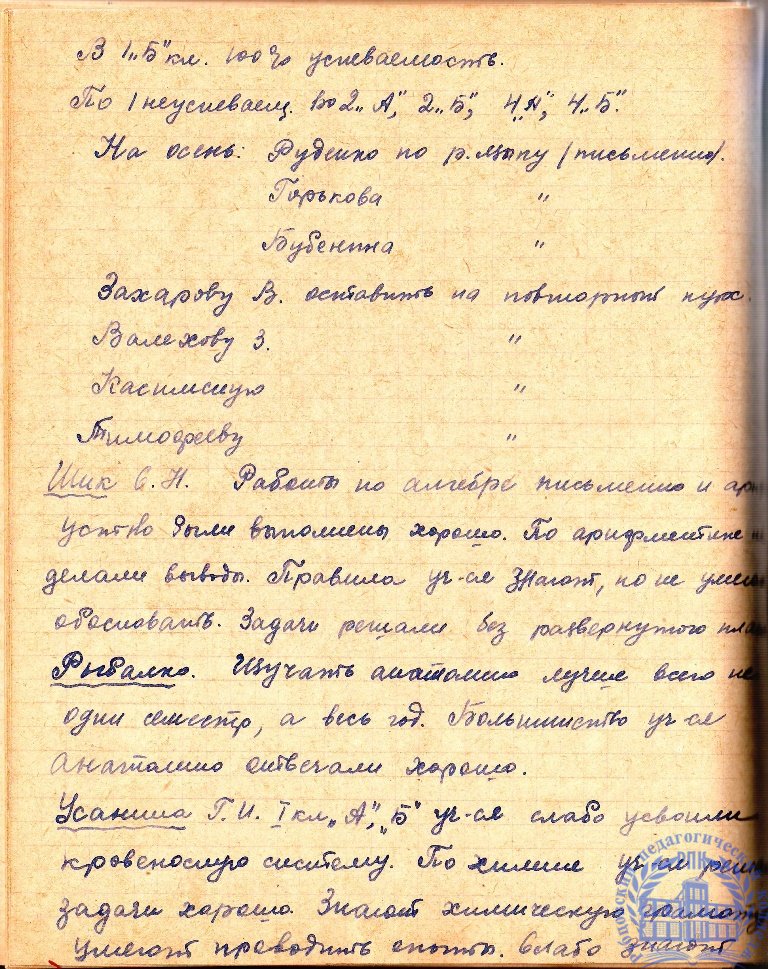 В 1 „Б" кл. 100% успеваемость.
По 1 неуспевающ. во 2 „А", 2 „Б", 4 „А", 4 „Б".
На осень: Руденко по р. языку (письменно).
Горькова "
Бубенина "
Захарову В. оставить на повторный курс.
Валехову З. "
Касимскую "
Тимофееву "
Шик С. Н. Работы по алгебре письменно и
устно были выполнены хорошо. По арифметике
делали выводы. Правила уч-ся знают, но не
обосновать. Задачи решали без развернутого
Рыбалко. Изучать анатомию лучше всего не
один семестр, а весь год. Большинство уч-ся
анатомию отвечали хорошо.
Усанина Г. И. I кл „А", „Б" уч-ся слабо усвоили
кровеносную систему. По химии уч-ся
задачи хорошо. Знают химическую грамоту
умеют проводить опыты. Слабо знают